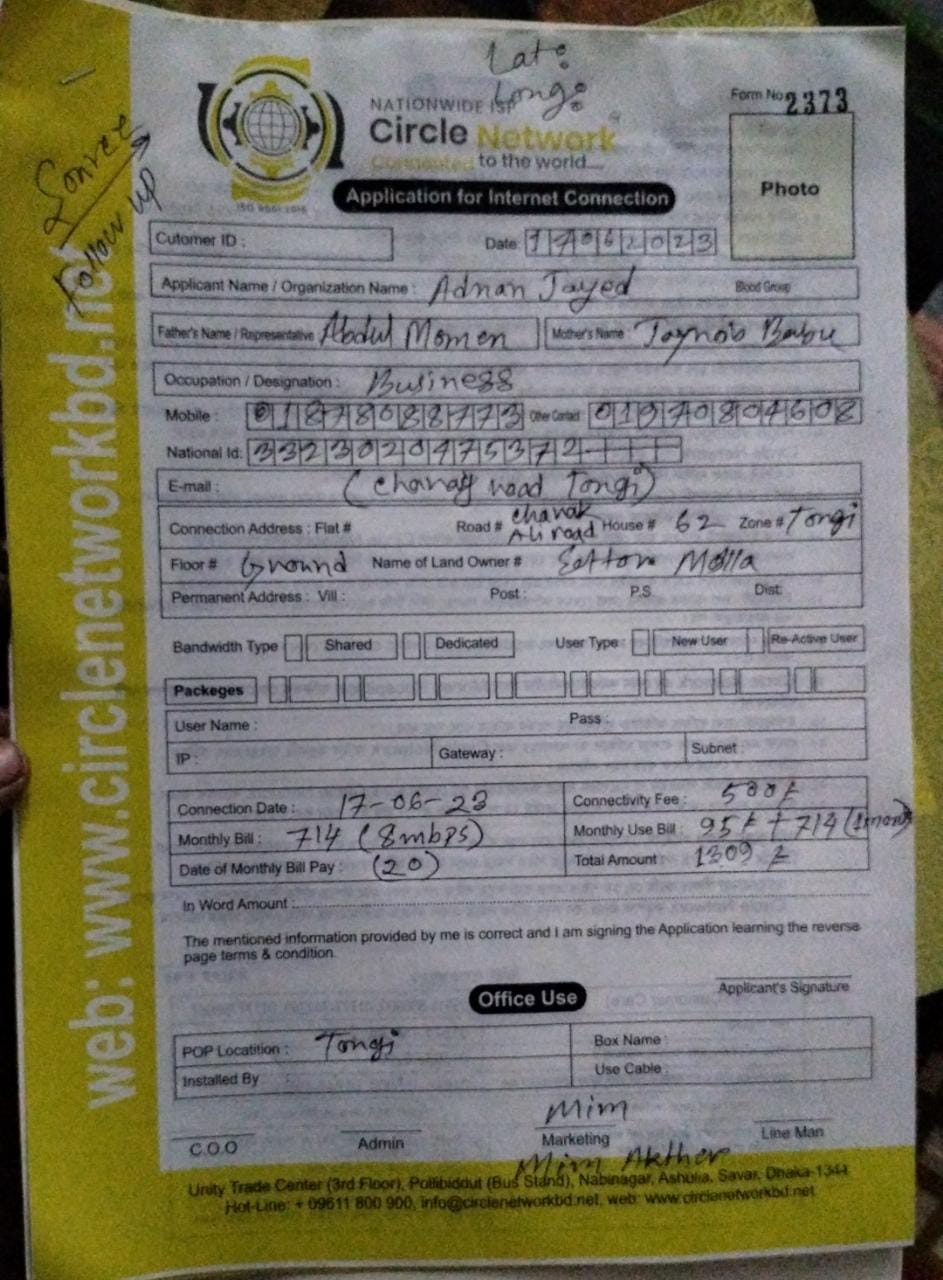 Lat:
Long:
NATIONWIDE ISP
Form No 2373
Circle Network
Connected to the world....
ISO 9001:2015
Photo
Application for Internet Connection
Follow up
web: www.circlenetworkbd.net
Cutomer ID :
Date: 17062023
Applicant Name / Organization Name : Adnan Jayed Blood Group
Father's Name / Representative Abdul Momen Mother's Name :
Occupation / Designation : Business
Mobile : 01878088773 Other Contact 01970804608
National Id: 3323020475372
E-mail : (road Tongi)
Connection Address : Flat # Road # Ali road House # 62 Zone # Tongi
Floor # Ground Name of Land Owner # Molla
Permanent Address : Vill : Post : P.S. Dist:
Bandwidth Type Shared Dedicated User Type New User Re-Active User
Packeges
User Name : Pass :
IP : Gateway : Subnet :
Connection Date : 17-06-23 Connectivity Fee : 500/-
Monthly Bill : 714 (8mbps) Monthly Use Bill : 95/- + 714 (1 mon)
Date of Monthly Bill Pay : (20) Total Amount : 1309/-
In Word Amount :
The mentioned information provided by me is correct and I am signing the Application learning the reverse
page terms & condition.
Applicant's Signature
Office Use
POP Locatition : Tongi Box Name :
Installed By Use Cable :
Mim
C.O.O Admin Marketing Line Man
Mim Akther
Unity Trade Center (3rd Floor), Pollibiddut (Bus Stand), Nabinagar, Ashulia, Savar, Dhaka-1344
Hot-Line: + 09611 800 900, info@circlenetworkbd.net, web: www.circlenetworkbd.net